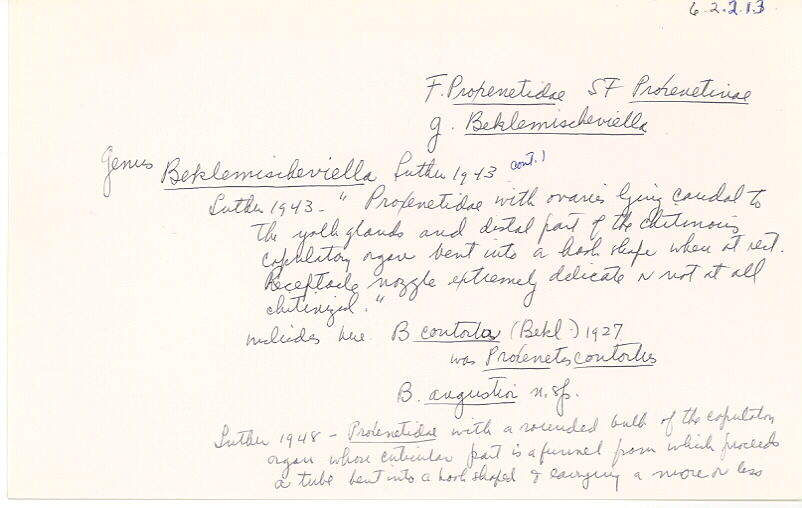 6.2.2.13
F. Proxenetidae SF Proxenetinae
g. Beklemischeviella
Genus Beklemischeviella Luther 1943 cont.1
Luther 1943 - " Proxenetidae with ovaries lying caudal to
the yolk glands and distal part of the chitinous
copulatory organ bent into a hook shape when at rest.
Receptacle nozzle extremely delicate or not at all
chitinized."
includes here B contorta (Bekl.) 1927
was Proxenetes contortus
B. angustior n.sp.
Luther 1948 - Proxenetidae with a rounded bulb of the copulatory
organ whose cuticular part is a funnel from which proceeds
a tube bent into a hook shaped & carrying a more or less